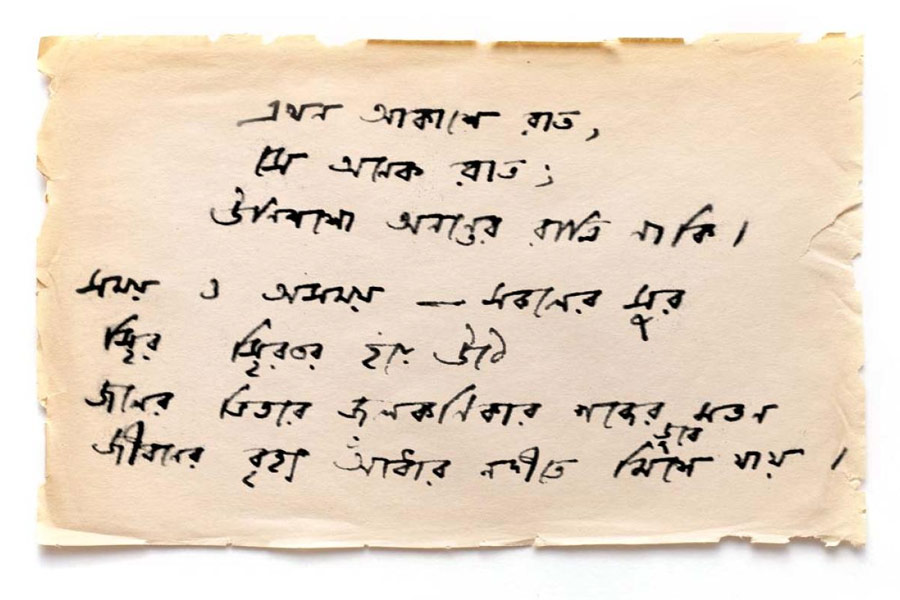 এখন আকাশে রাত,
সে অনেক রাত;
উনিশশো অনন্তের রাত্রি নাকি।
সময় ও অসময় — সকলের সুর
স্থির স্থিরতর হয়ে উঠে
জলের ভিতরে জলকণিকার শব্দের মতন
ডুবে
জীবনের বৃহৎ আঁধার নদীতে মিশে যায়।